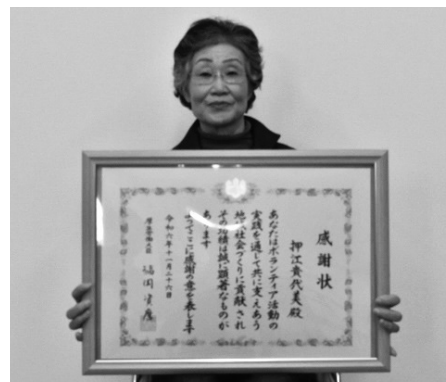 感謝状
押江貴代美殿
あなたはボランティア活動の
実践を通して共に支えあう
地域社会づくりに貢献され
その功績は誠に顕著なものが
あります
よってここに感謝の意を表します
令和六年十一月二十六日
厚生労働大臣 福岡資麿